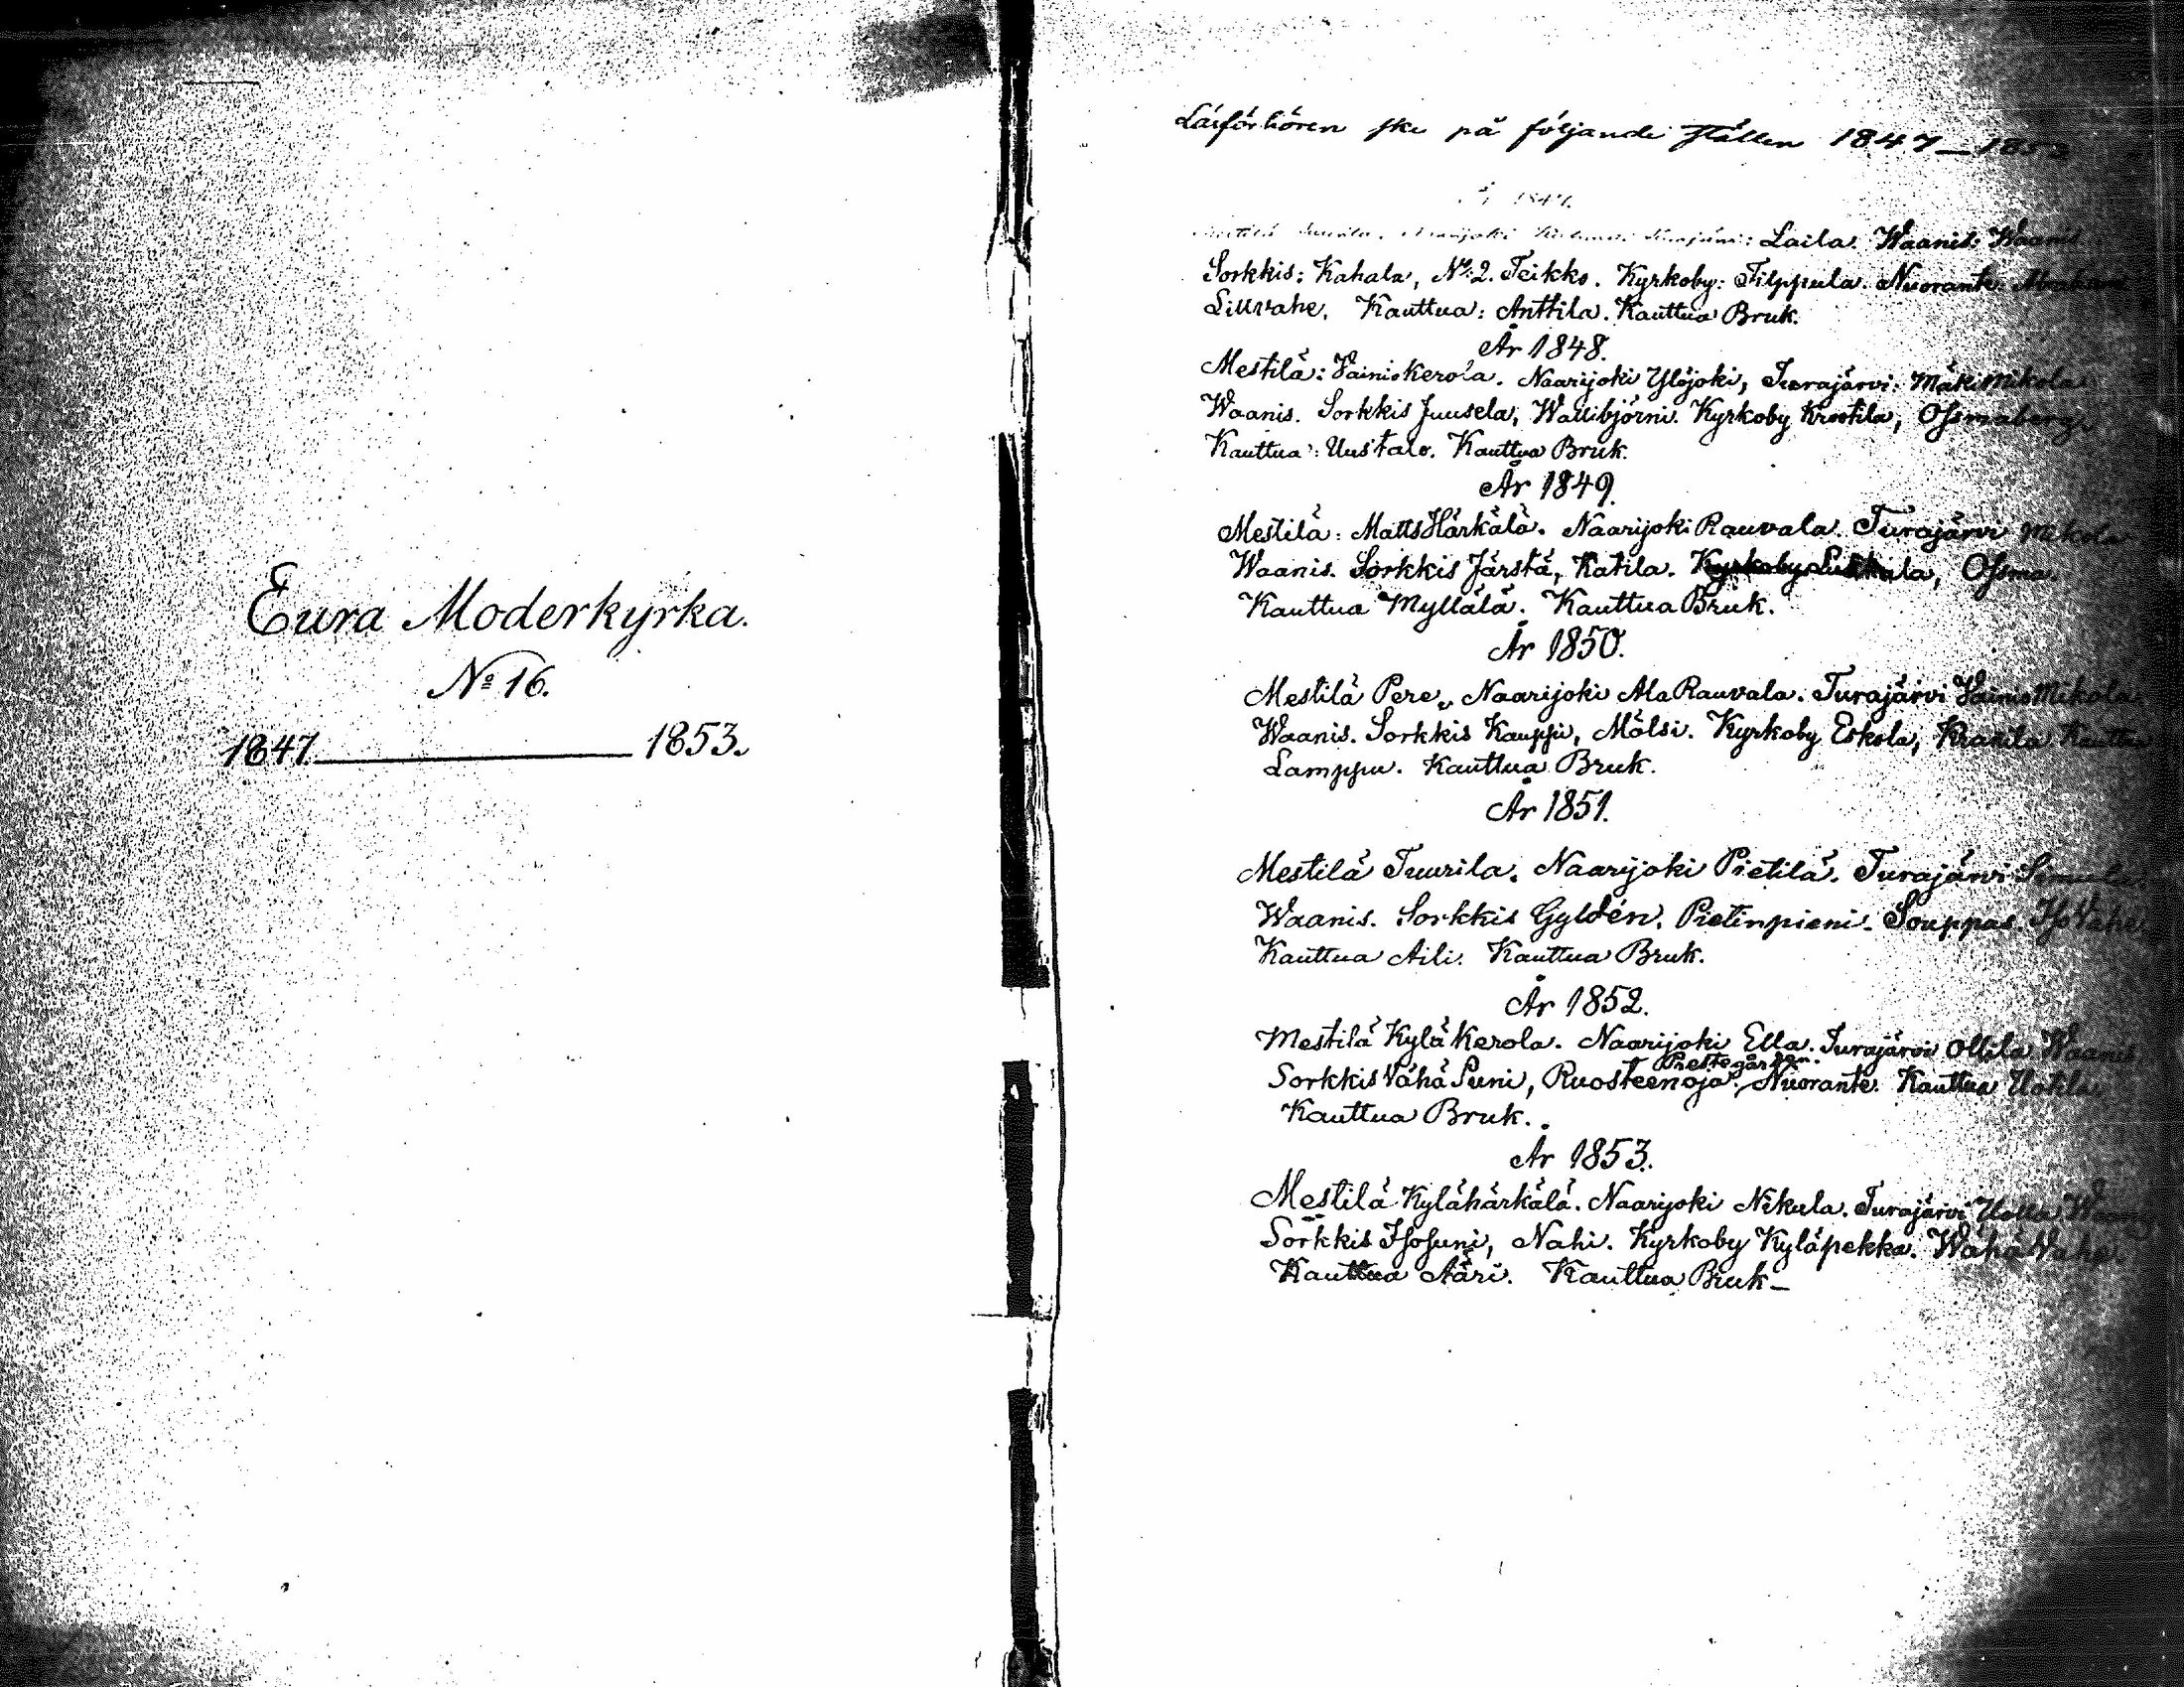 Eura Moderkyrka.
No 16.
1847 — 1853.
Läsförhören ske på följande ställen 1847—1853
1847.
Laila. Waanis: Waanis
Sorkkis: Kahala, No: 2. Teikko. Kyrkoby: Filppula. Nuorante
Lillvahe. Kauttua: Anttila. Kauttua Bruk.
År 1848.
Mestilä: Vainiokerola. Naarijoki Ylöjoki, Turajärvi: Mäki Mikola
Waanis. Sorkkis Juusela, Wallibjörni. Kyrkoby Krootila, Ossmaberg.
Kauttua: Uustalo. Kauttua Bruk.
År 1849.
Mestilä: Matts Härkälä. Naarijoki Rauvala. Turajärvi Mikola
Waanis. Sorkkis Järstä, Katila. Kyrkoby, Ossma.
Kauttua Myllälä. Kauttua Bruk.
År 1850.
Mestilä Pere, Naarijoki Ala Rauvala. Turajärvi Vainio Mikola.
Waanis. Sorkkis Kauppi, Mölsi. Kyrkoby Eskola, Kraaila Kauttua
Lamppu. Kauttua Bruk.
År 1851.
Mestilä Tuurila. Naarijoki Pietilä. Turajärvi Simula.
Waanis. Sorkkis Gyldén. Pietinpieni. Souppas. Iso Vahe
Kauttua Aili. Kauttua Bruk.
År 1852.
Mestilä Kylä Kerola. Naarijoki Ella. Turajärvi Ollila Waanis
Prestegården.
Sorkkis Vähä Suni, Ruosteenoja. Nuorante. Kauttua Uotila
Kauttua Bruk.
År 1853.
Mestilä Kylähärkälä. Naarijoki Nikula. Turajärvi
Sorkkis Isosuni, Nahi. Kyrkoby Kyläpekka. Wähä Vahe.
Kauttua Ääri. Kauttua Bruk—